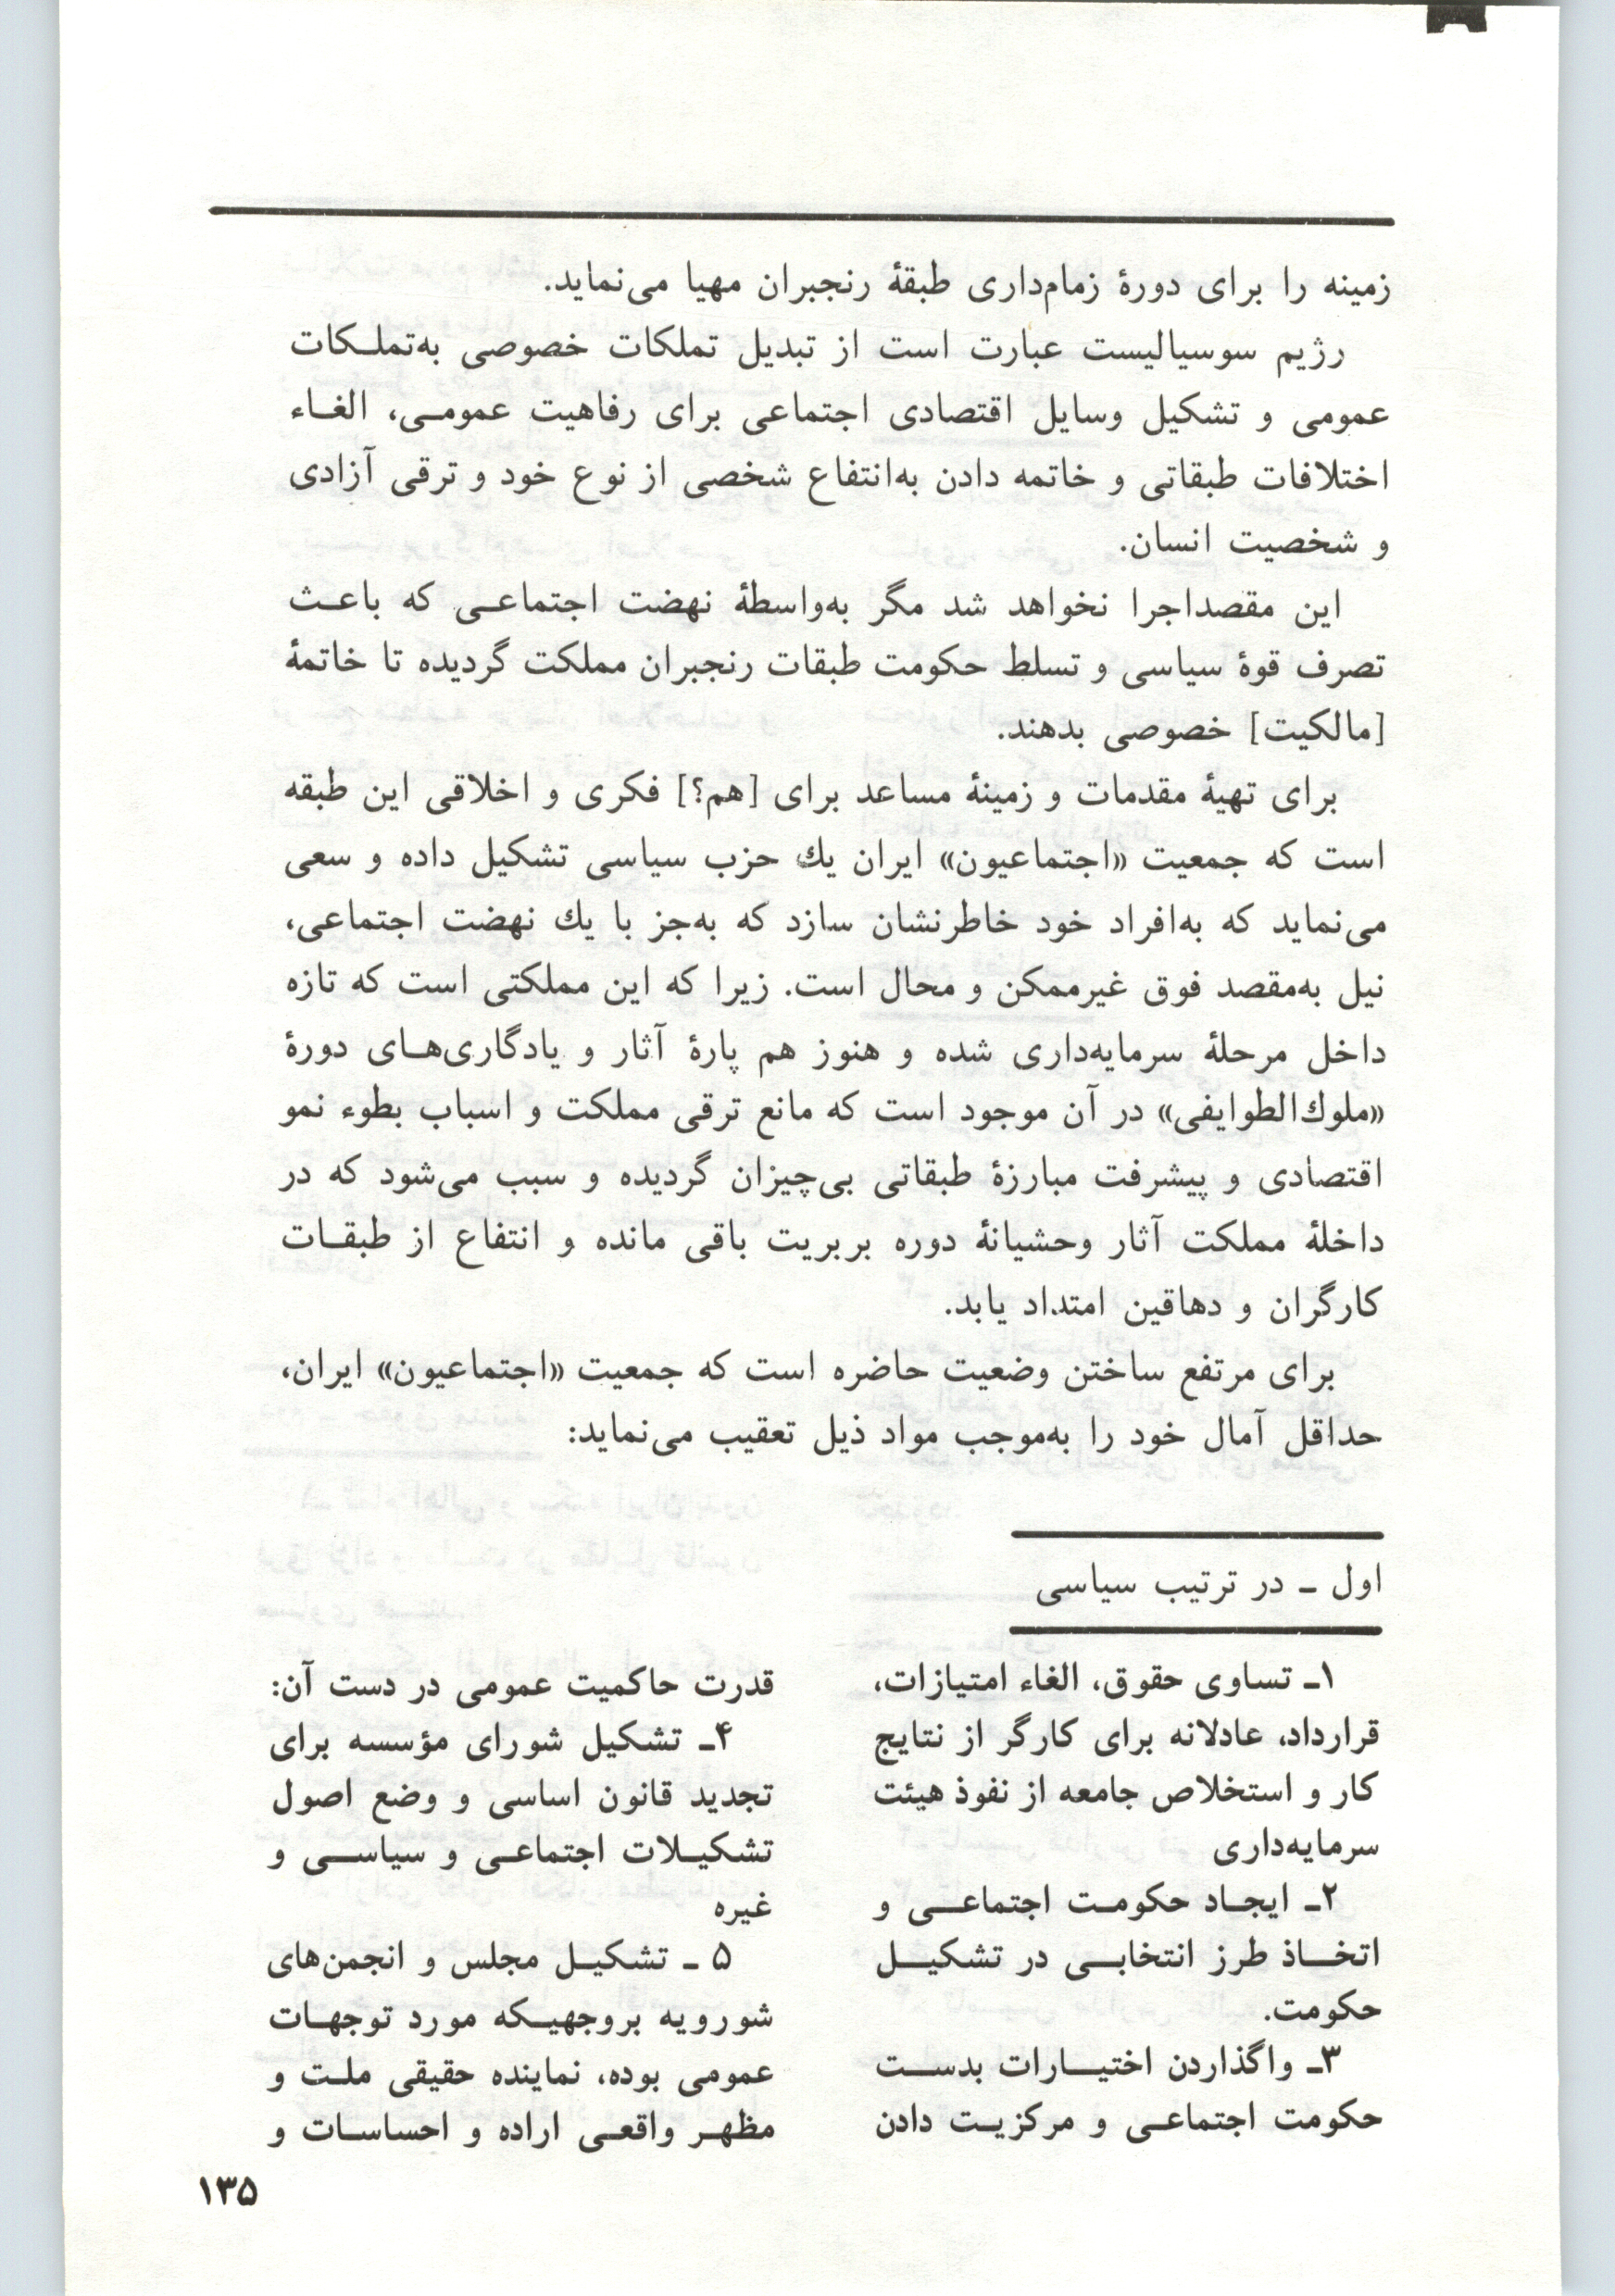 زمینه را برای دورهٔ زمام‌داری طبقهٔ رنجبران مهیا می‌نماید.
رژیم سوسیالیست عبارت است از تبدیل تملکات خصوصی به‌تملـکات
عمومی و تشکیل وسایل اقتصادی اجتماعی برای رفاهیت عمومـی، الغـاء
اختلافات طبقاتی و خاتمه دادن به‌انتفاع شخصی از نوع خود و ترقی آزادی
و شخصیت انسان.
این مقصداجرا نخواهد شد مگر به‌واسطهٔ نهضت اجتماعـی که باعـث
تصرف قوهٔ سیاسی و تسلط حکومت طبقات رنجبران مملکت گردیده تا خاتمهٔ
[مالکیت] خصوصی بدهند.
برای تهیهٔ مقدمات و زمینهٔ مساعد برای [هم؟] فکری و اخلاقی این طبقه
است که جمعیت «اجتماعیون» ایران یك حزب سیاسی تشکیل داده و سعی
می‌نماید که به‌افراد خود خاطرنشان سازد که به‌جز با یك نهضت اجتماعی،
نیل به‌مقصد فوق غیرممکن و محال است. زیرا که این مملکتی است که تازه
داخل مرحلهٔ سرمایه‌داری شده و هنوز هم پارهٔ آثار و یادگاری‌هـای دورهٔ
«ملوك‌الطوایفی» در آن موجود است که مانع ترقی مملکت و اسباب بطوء نمو
اقتصادی و پیشرفت مبارزهٔ طبقاتی بی‌چیزان گردیده و سبب می‌شود که در
داخلهٔ مملکت آثار وحشیانهٔ دوره بربریت باقی مانده و انتفاع از طبقـات
کارگران و دهاقین امتداد یابد.
برای مرتفع ساختن وضعیت حاضره است که جمعیت «اجتماعیون» ایران،
حداقل آمال خود را به‌موجب مواد ذیل تعقیب می‌نماید:
اول ـ در ترتیب سیاسی
۱ـ تساوی حقوق، الغاء امتیازات،
قرارداد، عادلانه برای کارگر از نتایج
کار و استخلاص جامعه از نفوذ هیئت
سرمایه‌داری
۲ـ ایجـاد حکومـت اجتماعـــی و
اتخـــاذ طرز انتخابـــی در تشکیـــل
حکومت.
۳ـ واگذاردن اختیـــارات بدســـت
حکومت اجتماعـی و مرکزیـت دادن
قدرت حاکمیت عمومی در دست آن:
۴ـ تشکیل شورای مؤسسه برای
تجدید قانون اساسی و وضع اصول
تشکیـلات اجتماعـی و سیاســـی و
غیره
۵ ـ تشکیـل مجلس و انجمن‌های
شورویه بروجهیـکه مورد توجهـات
عمومی بوده، نماینده حقیقی ملـت و
مظهـر واقعـی اراده و احساسـات و
۱۳۵